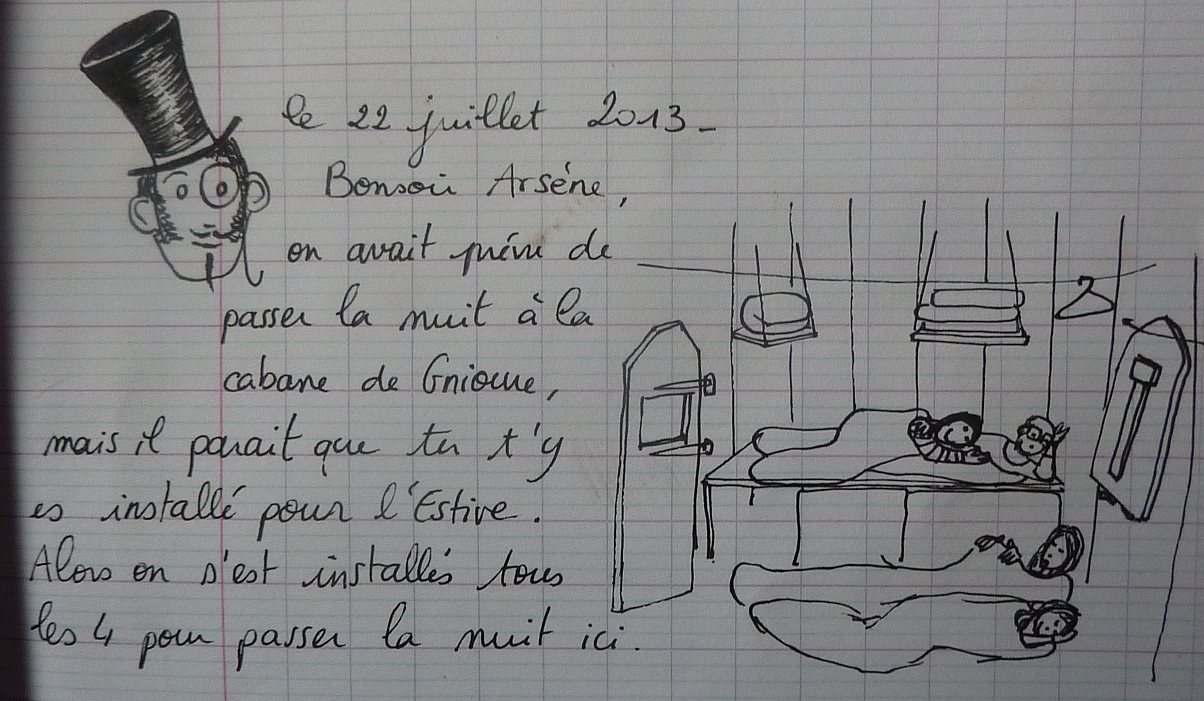 le 22 juillet 2013-
Bonsoir Arséne,
on avait prévu de
passer la nuit à la
cabane de Gnioure,
mais il parait que tu t'y
es installé pour l'Estive.
Alors on s'est installés tous
les 4 pour passer la nuit ici.